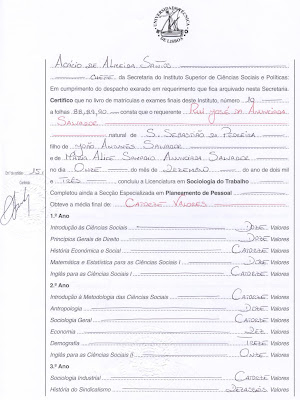 UNIVERSIDADE TÉCNICA DE LISBOA
Acácio de Almeida Santos
Chefe, da Secretaria do Instituto Superior de Ciências Sociais e Políticas:
Em cumprimento do despacho exarado em requerimento que fica arquivado nesta Secretaria.
Certifico que no livro de matrículas e exames finais deste Instituto, número 19
a folhas 88,89,90 consta que o requerente Rui José de Almeida
Salvador
natural de S. Sebastião da Pedreira
filho de João Antunes Salvador
e de Maria Alice Almeida Salvador
no dia Onze do mês de Dezembro do ano de dois mil
e Três concluiu a Licenciatura em Sociologia do Trabalho
Completou ainda a Secção Especializada em Planeamento de Pessoal
Obteve a média final de: Catorze Valores
1.º Ano
Introdução às Ciências Sociais Doze Valores
Princípios Gerais de Direito Doze Valores
História Económica e Social Catorze Valores
Matemática e Estatística para as Ciências Sociais I Doze Valores
Inglês para as Ciências Sociais I Catorze Valores
2.º Ano
Introdução à Metodologia das Ciências Sociais Catorze Valores
Antropologia Doze Valores
Sociologia Geral Catorze Valores
Economia Dez Valores
Demografia Treze Valores
Inglês para as Ciências Sociais II Onze Valores
3.º Ano
Sociologia Industrial Catorze Valores
História do Sindicalismo Dezasseis Valores